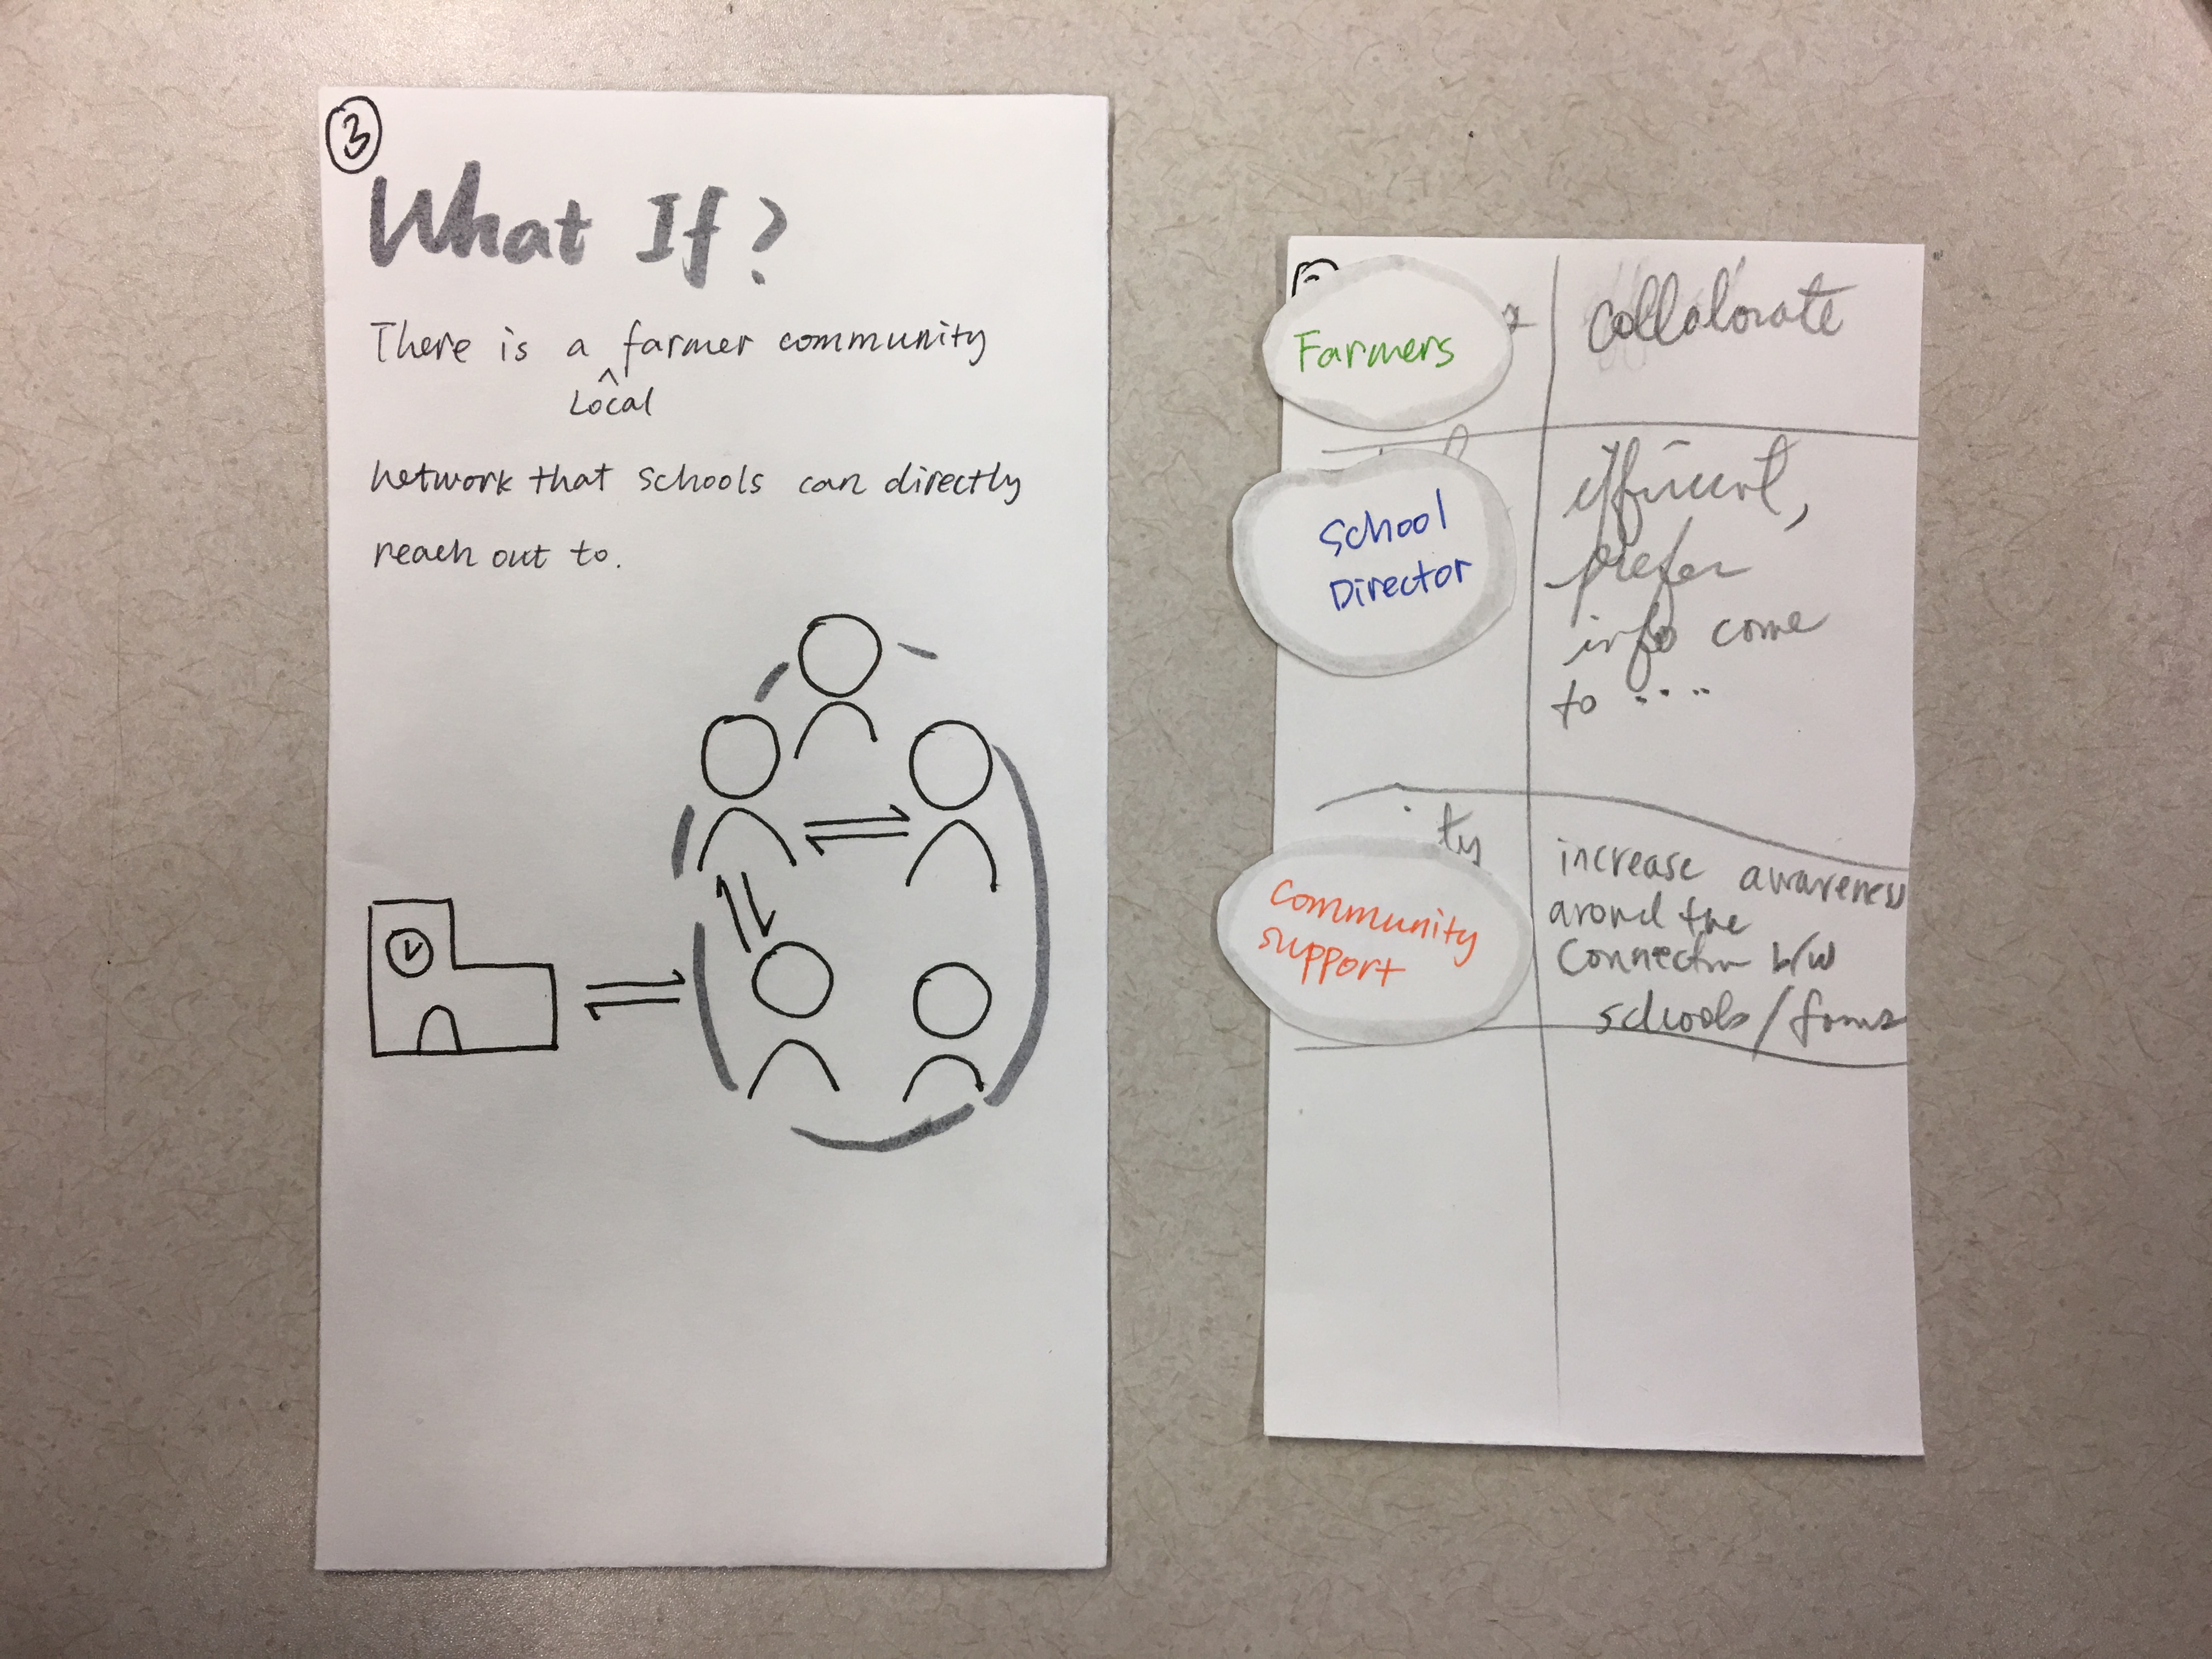 3
What If?
There is a farmer community
^
Local
network that schools can directly
reach out to.
Farmers
collaborate
School
Director
efficient,
prefer
info come
to ....
ty
Community
support
increase awareness
around the
connection b/w
schools/farms